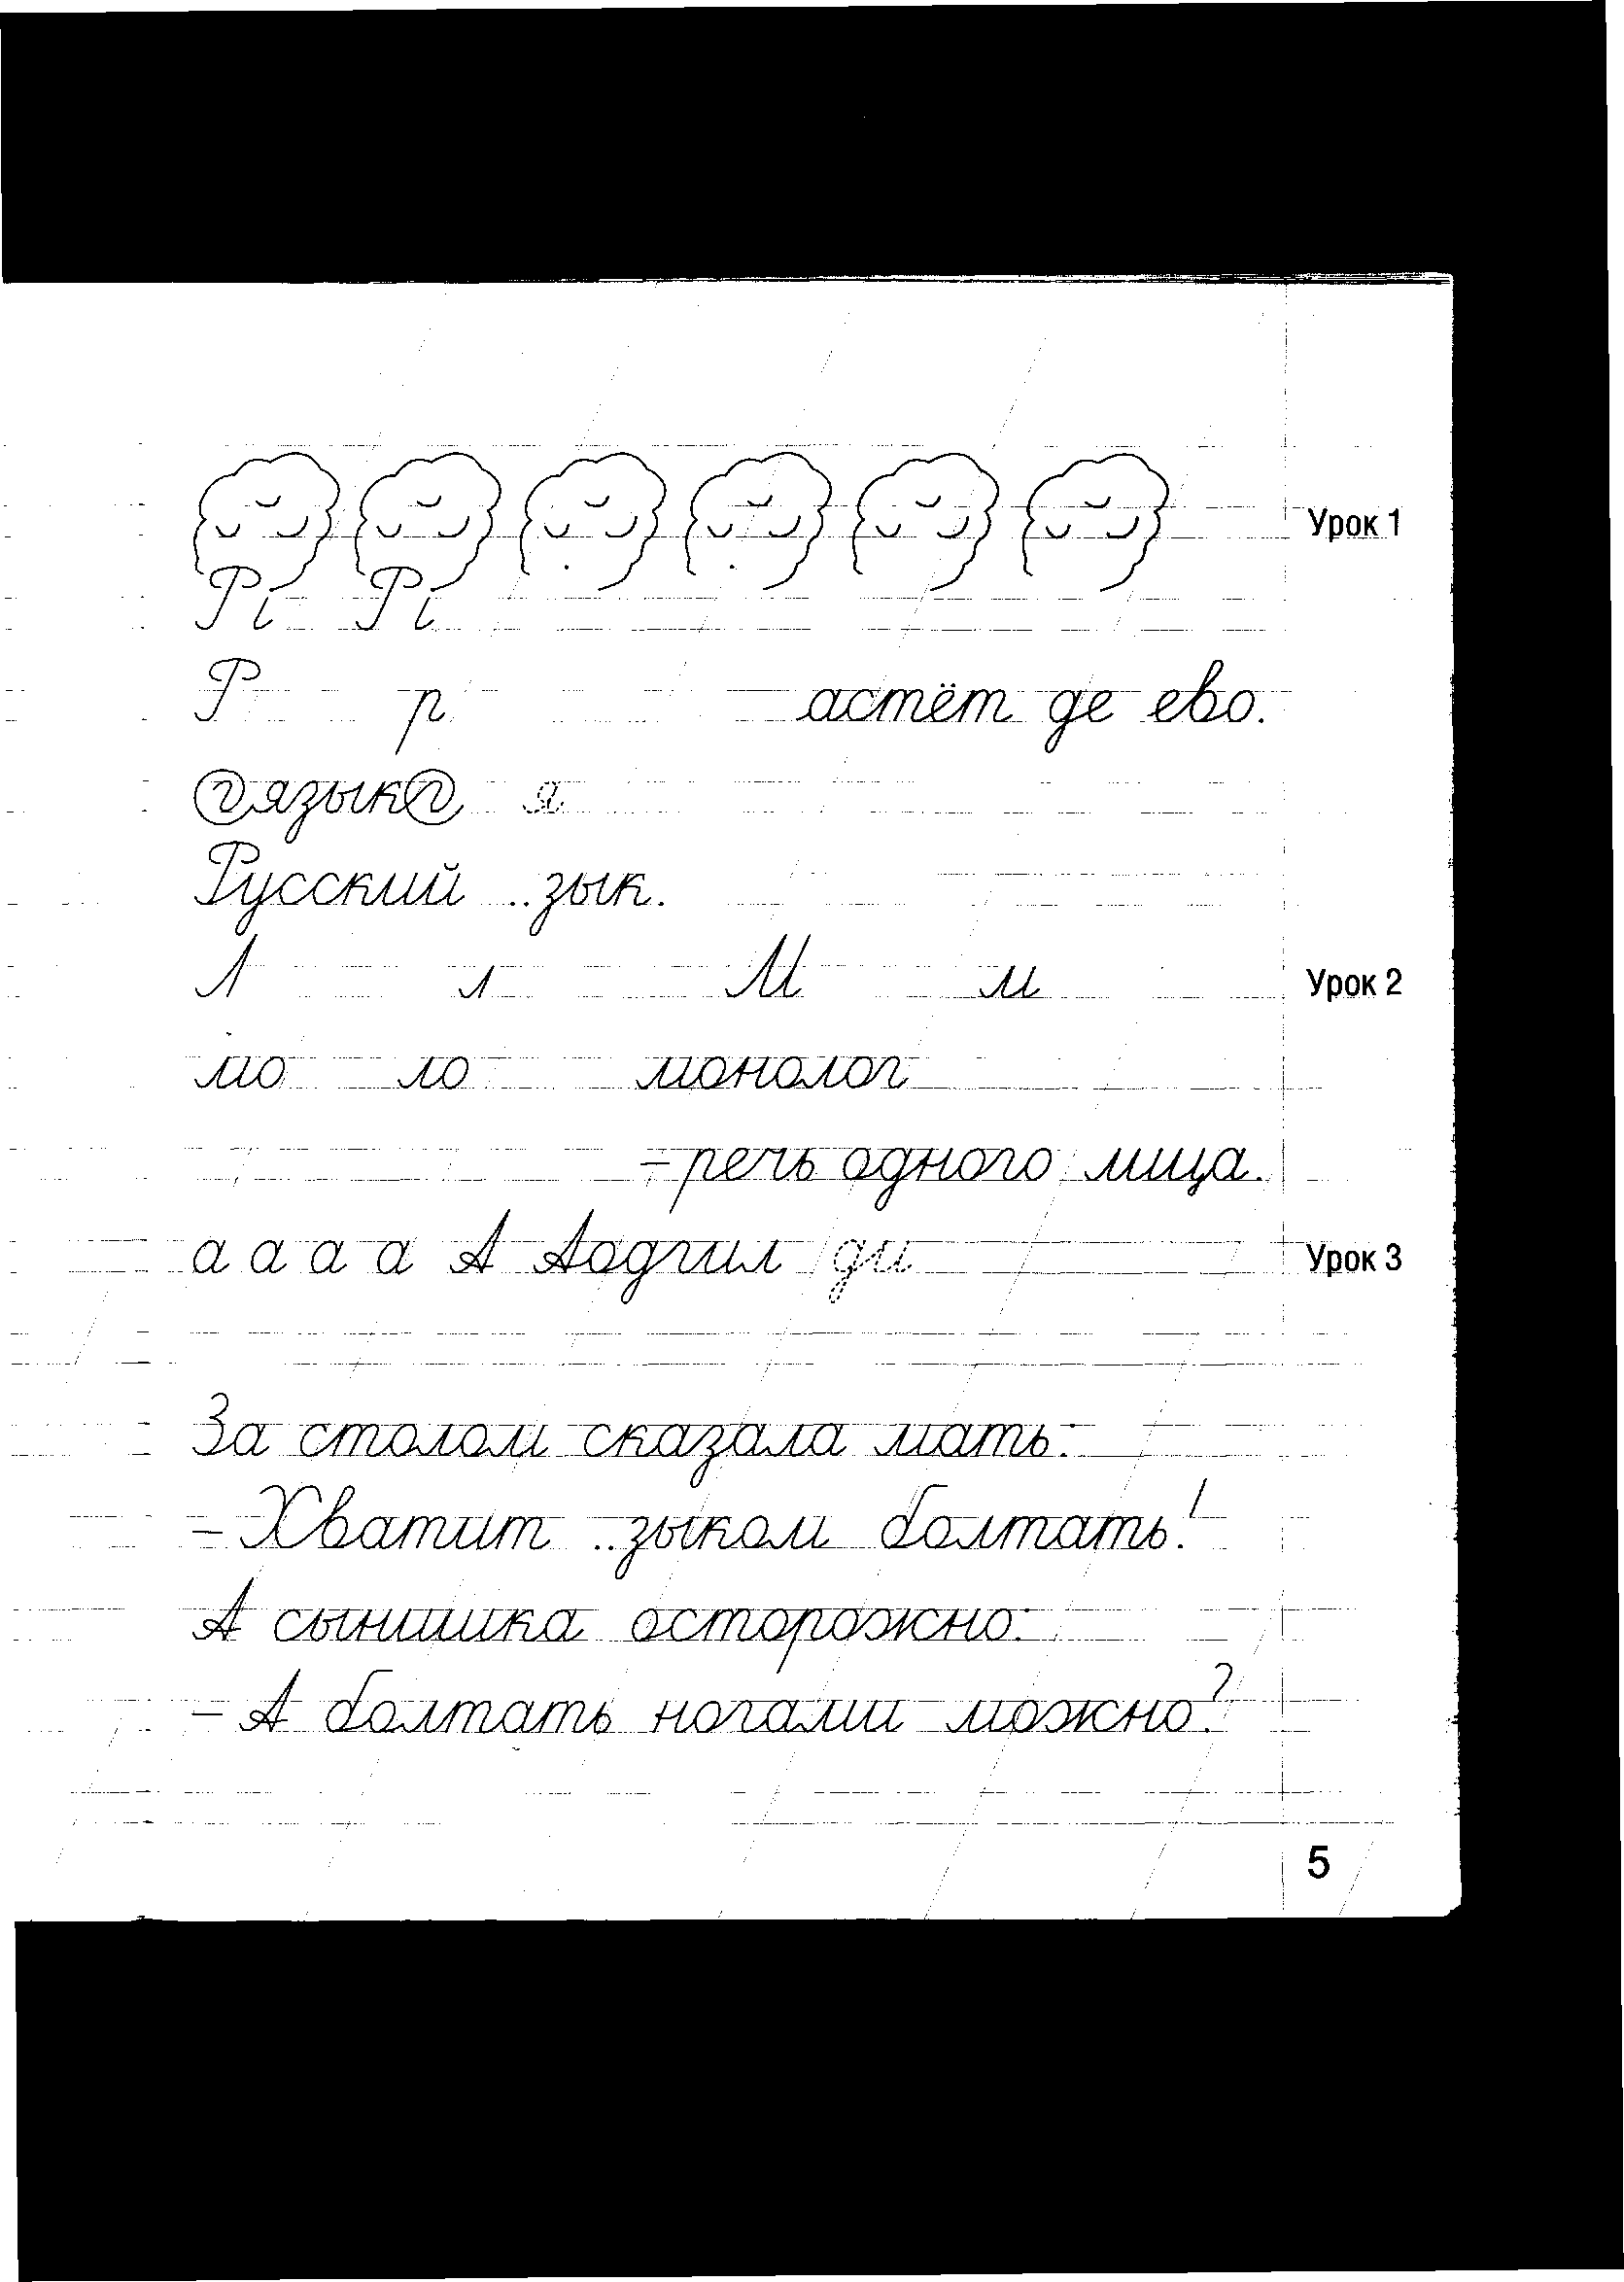 Урок 1
Рі Рі
Р р астём де ево.
языкя
Русский ..зык.
Л л М м Урок 2
мо ло монолог
– речь одного лица.
а а а а А Урок 3
За столом сказала мать:
– Хватит ..зыком болтать!
А сынишка осторожно:
– А болтать ногами можно?
5